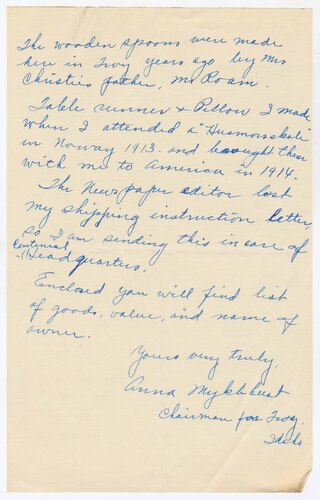 The wooden spoons were made
here in Troy years ago by Mrs
Christie's father, Mr Roam.
Table runner & Pillow I made
when I attended a "Husmorsskole"
in Norway 1913 - and brought them
with me to America in 1914.
The Newspaper editor lost
my shipping instruction letter,
so I am sending this in care of
Centennial
Headquarters.
Enclosed you will find list
of goods, value, and name of
owner.
Yours very truly,
Anna
Chairman for Troy,
Idaho